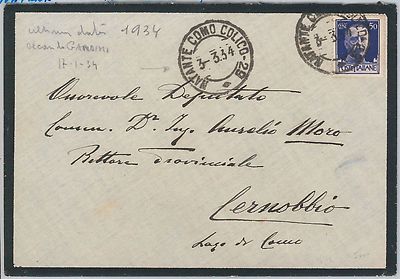 1934
17-1-34
NATANTE COMO COLICO - 29
3-3.34
50
POSTE ITALIANE
Onorevole Deputato
Comm. Dr. Ing. Aurelio Moro
Rettore Provinciale
Cernobbio
Lago di Como